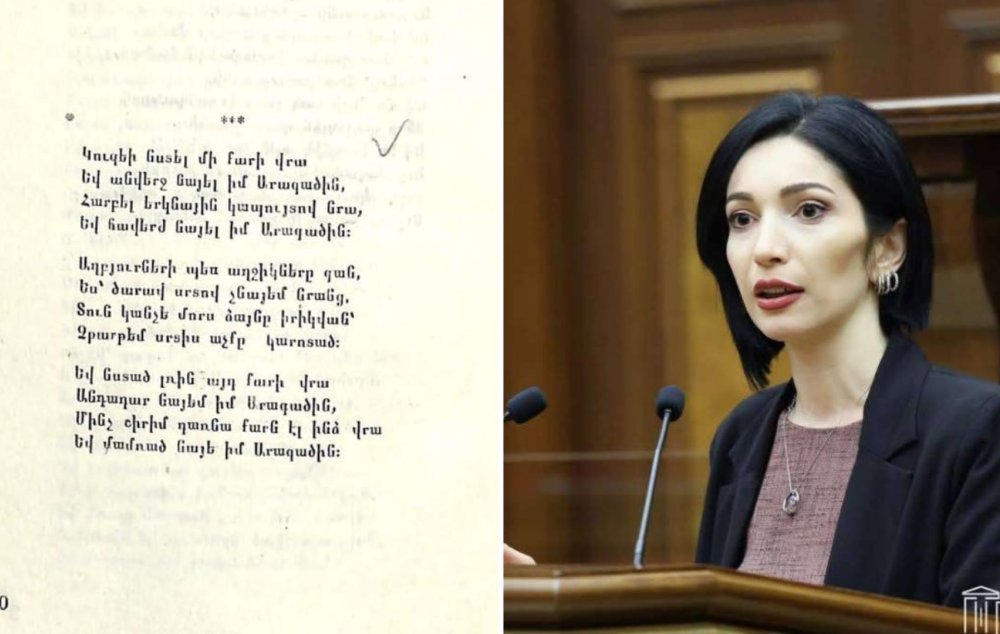 ***
Կուզեի նստել մի քարի վրա
Եվ անվերջ նայել իմ Արագածին,
Հարբել երկնային կապույտով նրա,
Եվ հավերժ նայել իմ Արագածին։
Աղբյուրների պես աղջիկները գան,
Ես՝ ծարավ սրտով չնայեմ նրանց,
Տուն կանչե մորս ձայնը իրիկվան՝
Չթարթեմ սրտիս աչքը կարոտած։
Եվ նստած լռին այդ քարի վրա
Անդադար նայեմ իմ Արագածին,
Մինչ շիրիմ դառնա քարն էլ ինձ վրա
Եվ մամռած նայե իմ Արագածին։
0